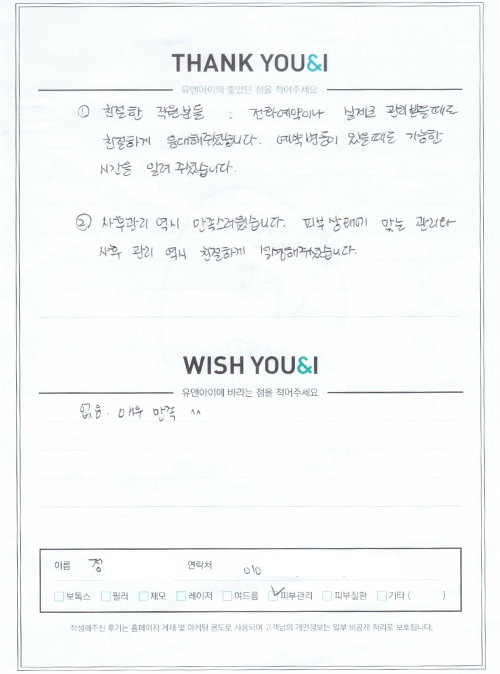 THANK YOU&I
유앤아이의 좋았던 점을 적어주세요
① 친절한 직원분들 : 전화예약이나 실제로 관리받을때도
친절하게 응대해주셨습니다. 예약변동이 있을때도 가능한
시간을 알려 주셨습니다.
② 사후관리 역시 만족스러웠습니다. 피부상태에 맞는 관리와
사후 관리 역시 친절하게 설명해주셨습니다.
WISH YOU&I
유앤아이에 바라는 점을 적어주세요
없음. 매우 만족 ^^
이름 정 연락처 010
보톡스 필러 제모 레이저 여드름 피부관리 피부질환 기타 ( )
작성해주신 후기는 홈페이지 게재 및 마케팅 용도로 사용되며 고객님의 개인정보는 일부 비공개 처리로 보호됩니다.